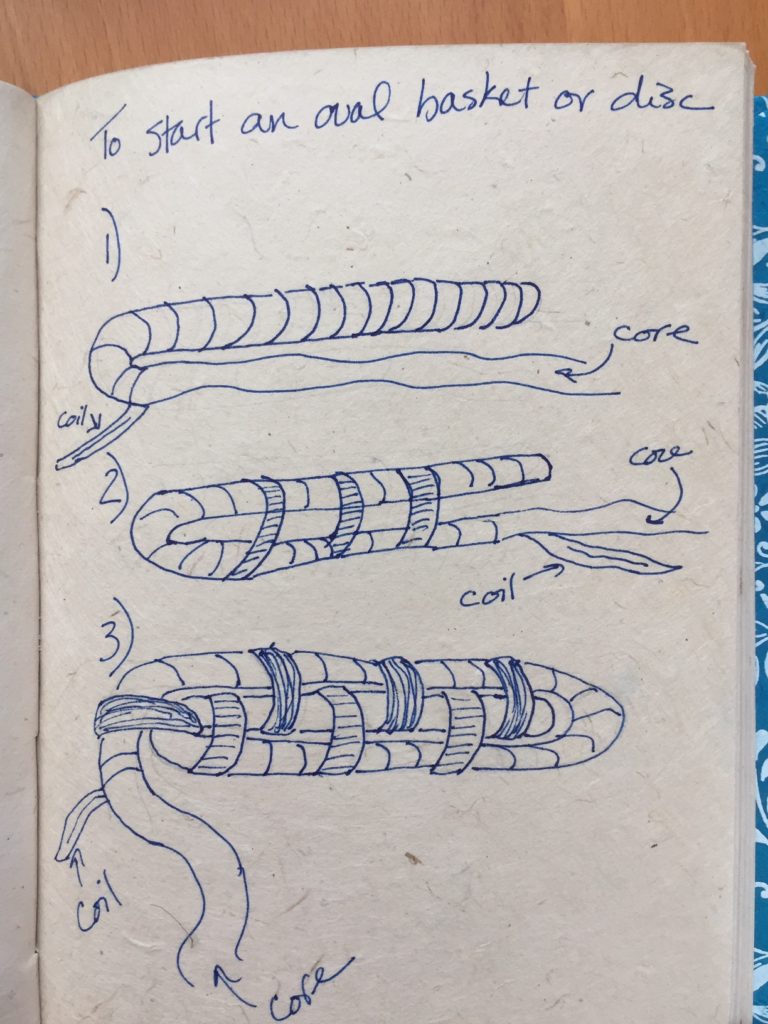 To start an oval basket or disc
1)
core
coil
2)
core
coil
3)
coil
core